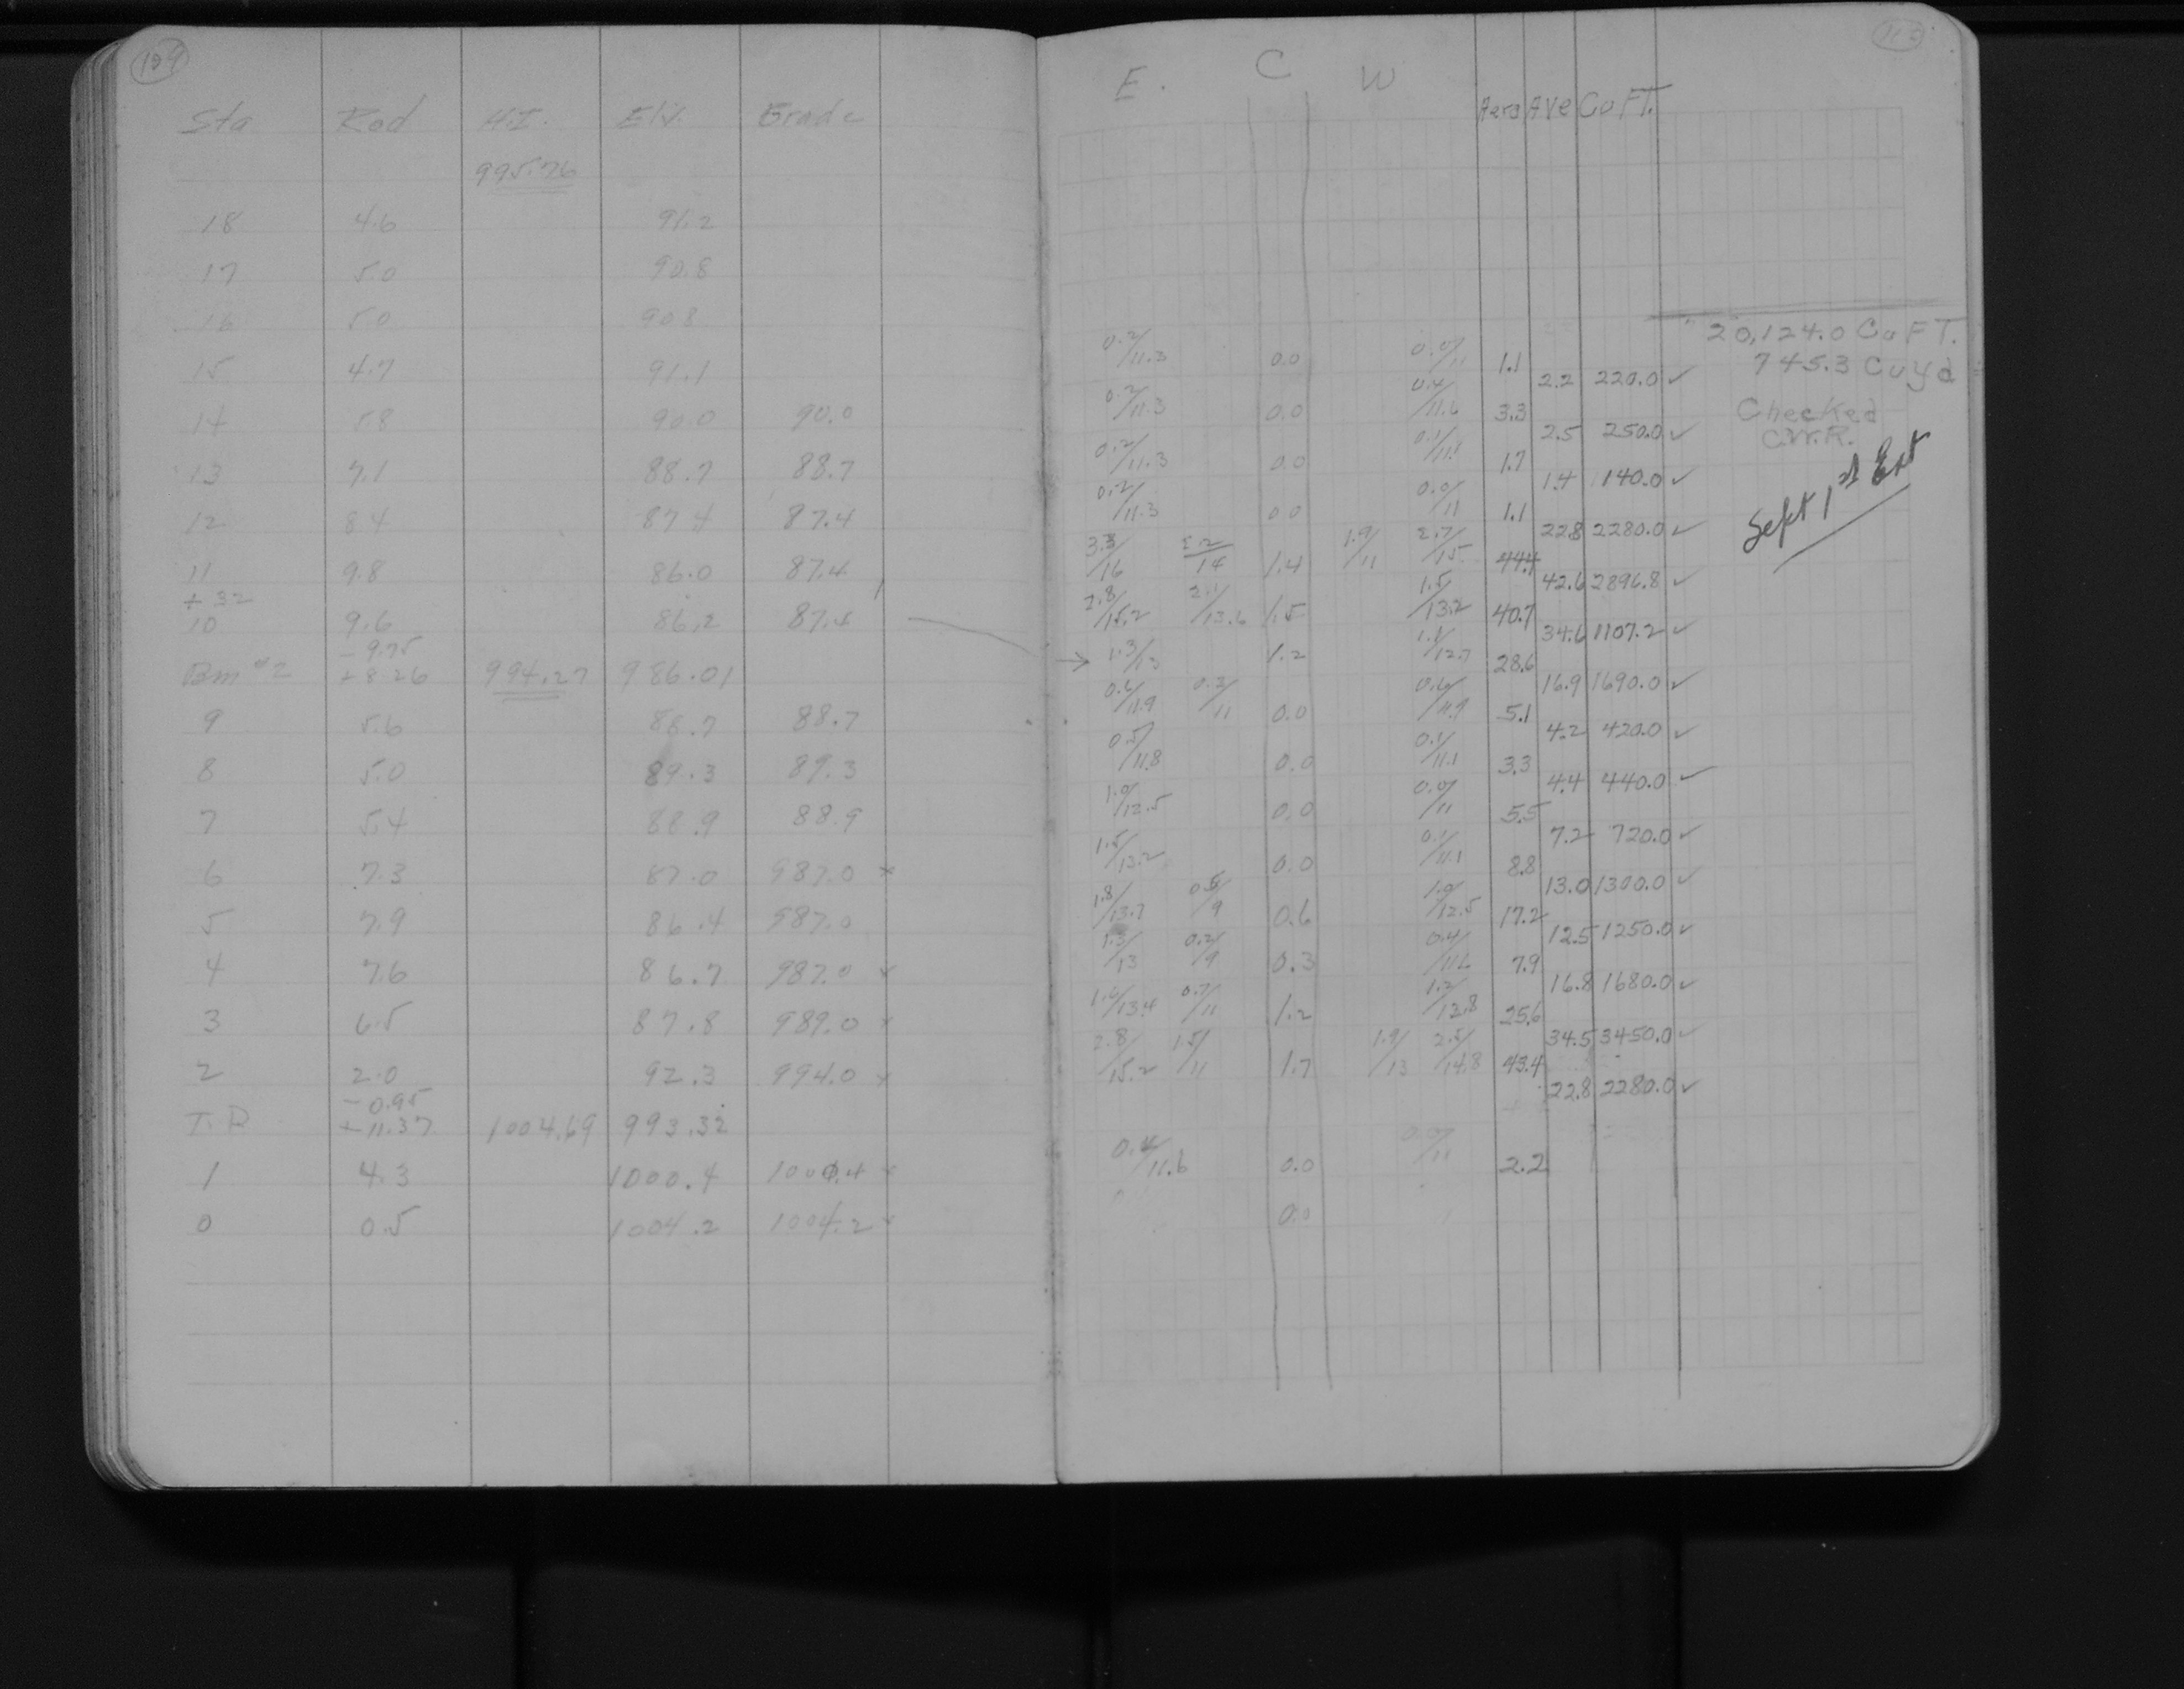 109
Sta Rod H.I. Elv. Grade
995.76
18 4.6 91.2
17 5.0 90.8
16 5.0 90.8
15 4.7 91.1
14 5.8 90.0 90.0
13 7.1 88.7 88.7
12 8.4 87.4 87.4
11 9.8 86.0 87.4
+32
10 9.6 86.2 87.4
-9.75
Bm #2 +8.26 994.27 986.01
9 5.6 88.7 88.7
8 5.0 89.3 89.3
7 5.4 88.9 88.9
6 7.3 87.0 987.0 x
5 7.9 86.4 987.0
4 7.6 86.7 987.0 x
3 6.5 87.8 989.0 x
2 2.0 92.3 994.0 x
-0.95
T.P. +11.37 1004.69 993.32
1 4.3 1000.4 1000.4 x
0 0.5 1004.2 1004.2 x
113
E. C W Aera Ave Cu FT.
0.2/11.3 0.0 0.0/11 1.1
2.2 220.0 ✓
0.2/11.3 0.0 0.4/11.6 3.3
2.5 250.0 ✓
0.2/11.3 0.0 0.1/11.1 1.7
1.4 140.0 ✓
0.2/11.3 0.0 0.0/11 1.1
22.8 2280.0 ✓
3.3/16 2.2/14 1.4 1.9/11 2.7/15 44.4
42.6 2896.8 ✓
2.8/15.2 2.1/13.6 1.5 1.5/13.2 40.7
34.6 1107.2 ✓
→ 1.3/13 1.2 1.1/12.7 28.6
16.9 1690.0 ✓
0.6/11.9 0.3/11 0.0 0.6/11.9 5.1
4.2 420.0 ✓
0.5/11.8 0.0 0.1/11.1 3.3
4.4 440.0 ✓
1.0/12.5 0.0 0.0/11 5.5
7.2 720.0 ✓
1.5/13.2 0.0 0.1/11.1 8.8
13.0 1300.0 ✓
1.8/13.7 0.5/9 0.6 1.0/12.5 17.2
12.5 1250.0 ✓
1.3/13 0.2/9 0.3 0.4/11.6 7.9
16.8 1680.0 ✓
1.6/13.4 0.7/11 1.2 1.2/12.8 25.6
34.5 3450.0 ✓
2.8/15.2 1.5/11 1.7 1.9/13 2.5/14.8 43.4
22.8 2280.0 ✓
0.4/11.6 0.0 0.0/11 2.2
0.0
20,124.0 Cu FT.
745.3 Cu yd
Checked
C.W.R.
Sept 1st Est